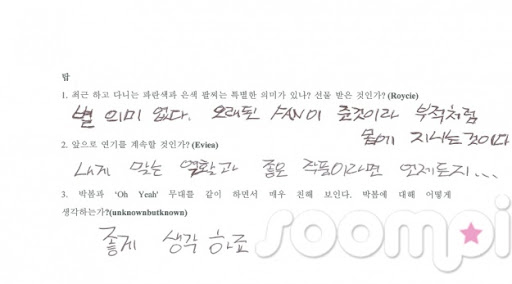 답
1. 최근 하고 다니는 파란색과 은색 팔찌는 특별한 의미가 있나? 선물 받은 것인가? (Roycie)
별 의미 없다. 오래된 FAN이 준것이라 부적처럼
몸에 지니는것이다
2. 앞으로 연기를 계속할 것인가? (Eviea)
내게 맞는 역활과 좋은 작품이라면 언제든지...
3. 박봄과 'Oh Yeah' 무대를 같이 하면서 매우 친해 보인다. 박봄에 대해 어떻게
생각하는가?(unknownbutknown)
좋게 생각 하죠
soompi